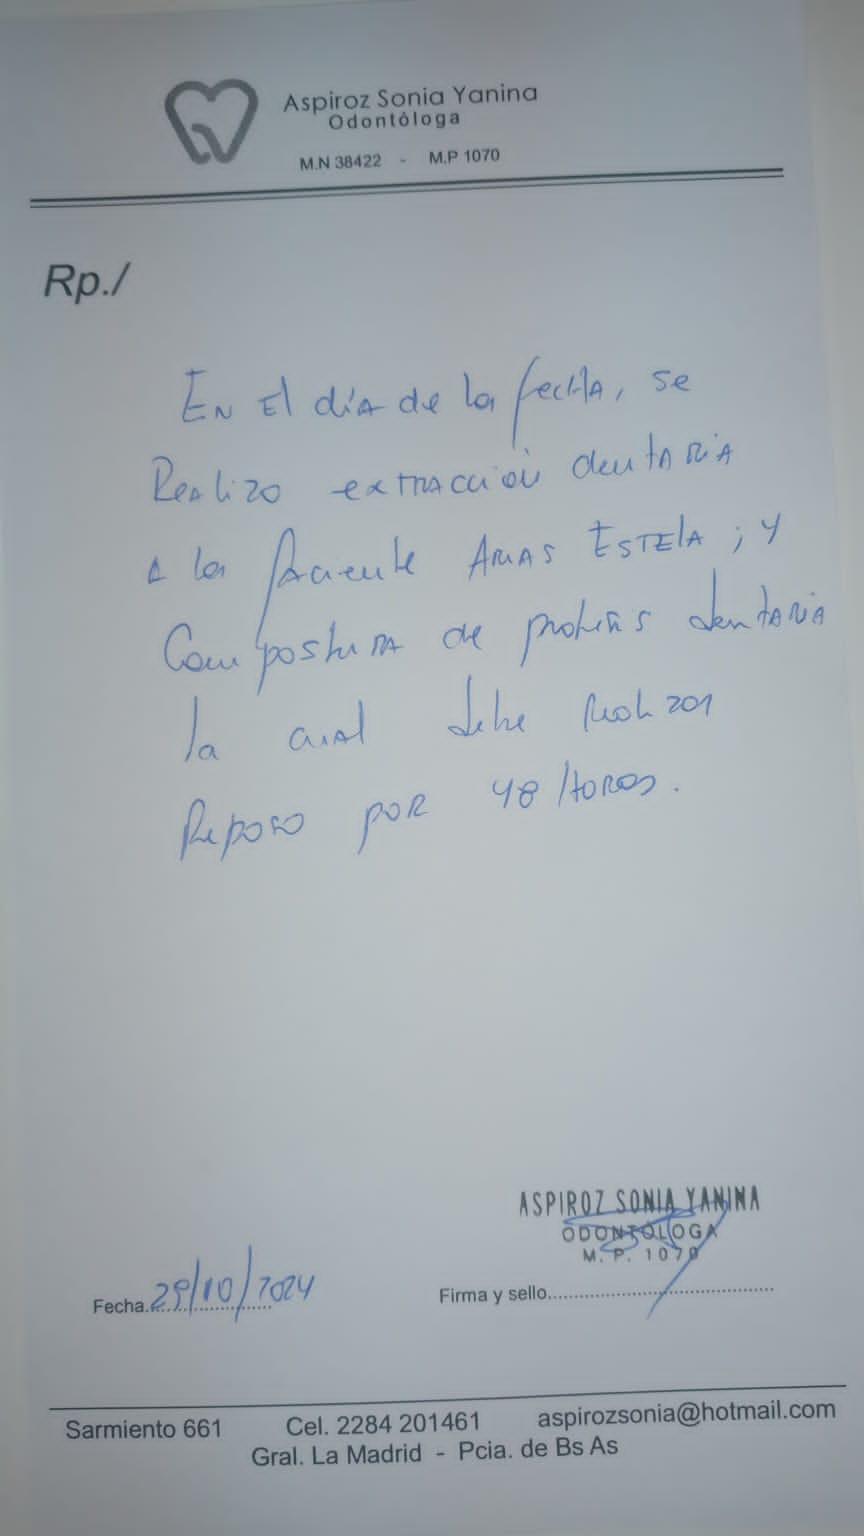 Aspiroz Sonia Yanina
Odontóloga
M.N 38422 - M.P 1070
Rp./
En el día de la fecha, se
Realizo extracción dentaria
a la paciente Arias Estela; y
Compostura de protesis dentaria
la cual debe realizar
Reposo por 48 horas.
ASPIROZ SONIA YANINA
ODONTÓLOGA
M. P. 1070
Fecha. 29/10/2024
Firma y sello
Sarmiento 661 Cel. 2284 201461 aspirozsonia@hotmail.com
Gral. La Madrid - Pcia. de Bs As